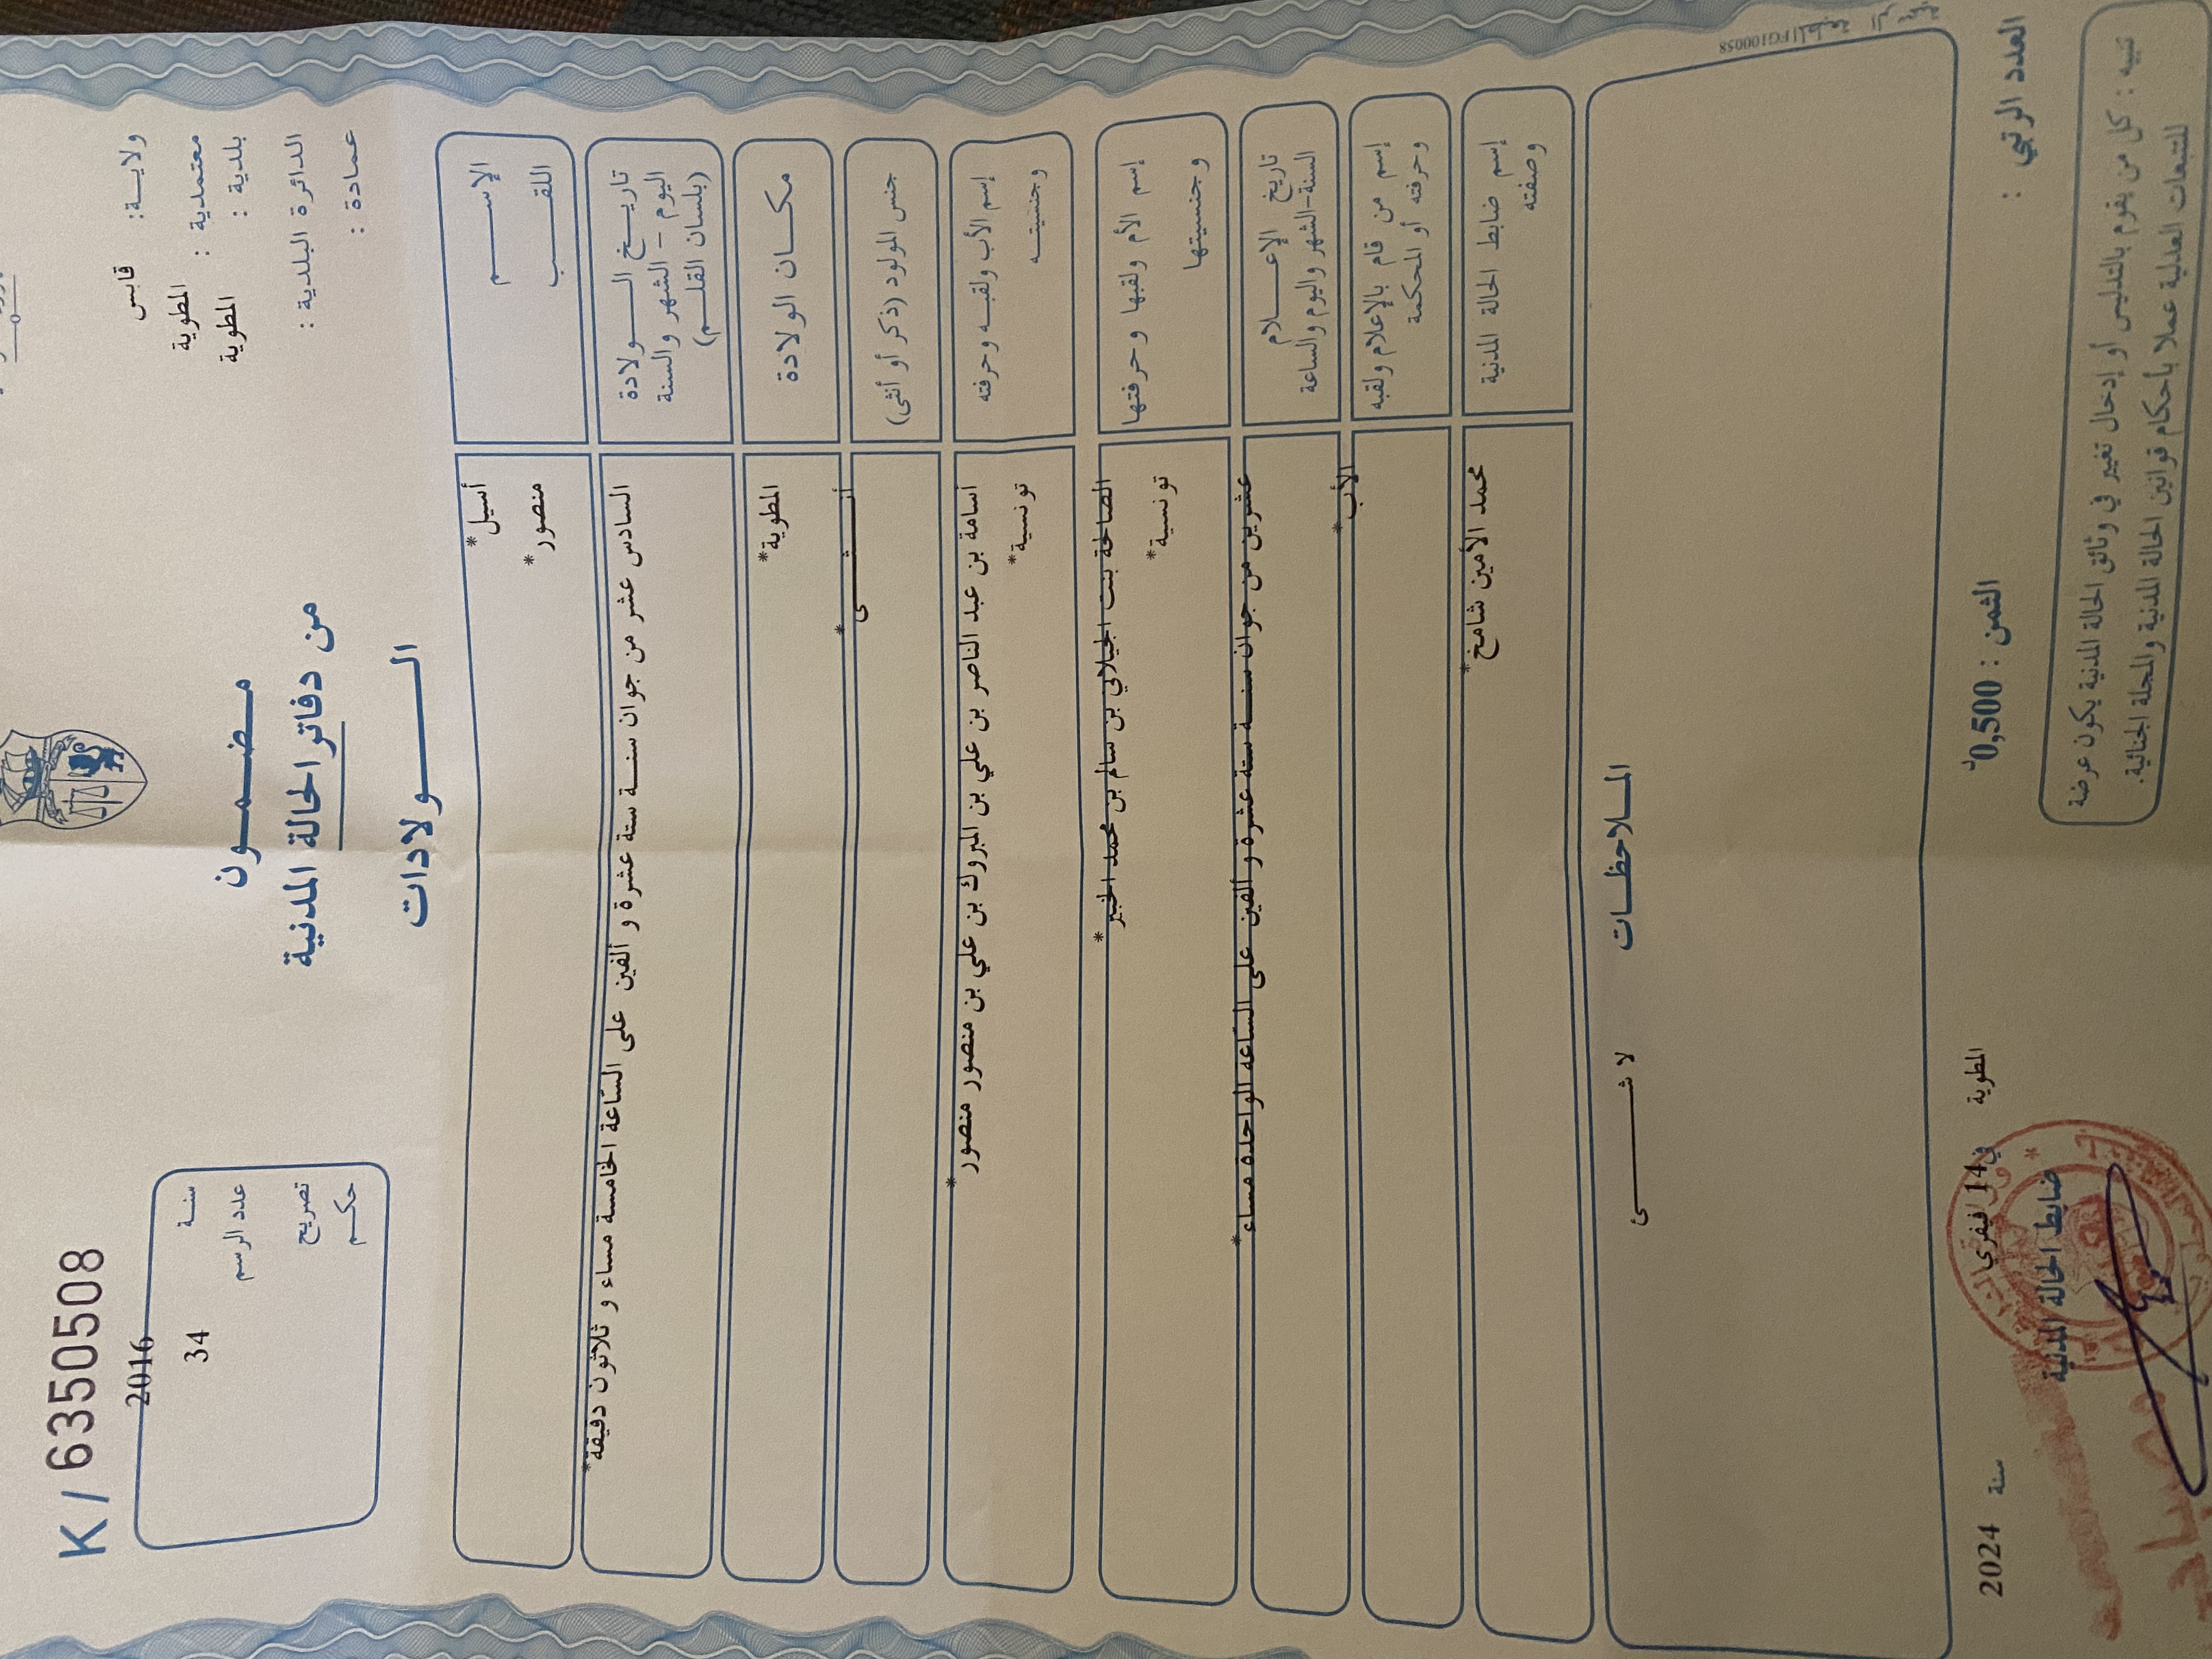 K / 6350508
ولايـة: قابس
معتمدية : المطوية
بلدية : المطوية
الدائرة البلدية :
عمادة :
مـضـمـون
من دفاتر الحالة المدنية
الـولادات
سنـة 2016
عدد الرسم 34
تصريح
حكـم
الإسـم أسيل*
اللقـب منصور*
تاريـخ الـولادة السادس عشر من جوان سنـة ستة عشرة و ألفين على الساعة الخامسة مساء و ثلاثون دقيقة*
اليوم - الشهر والسنة
(بلسان القلـم)
مكـان الولادة المطوية*
جنس المولود (ذكر أو أنثى) أنـثـى*
إسم الأب ولقبـه وحرفته أسامة بن عبد الناصر بن علي بن المبروك بن علي بن منصور منصور*
وجنسيتـه تونسية*
إسم الأم ولقبها وحرفتها الصالحة بنت الجيلاني بن سالم بن محمد الجبير*
وجنسيتها تونسية*
تاريخ الإعـلام عشرين من جوان سنـة ستة عشرة و ألفين على الساعة الواحدة مساء*
السنة-الشهر واليوم والساعة
إسم من قام بالإعلام ولقبه الأب*
وحرفته أو المحكمة
إسم ضابط الحالة المدنية محمد الأمين شامخ*
وصفته
المـلاحظـات
لا شـئ
FG100058
العدد الرتبي :
الثمن : 0,500د
المطوية في 14 فيفري سنة 2024
ضابط الحالة المدنية
تنبيه : كل من يقوم بالتدليس أو إدخال تغيير في وثائق الحالة المدنية يكون عرضة
للتتبعات العدلية عملا بأحكام قوانين الحالة المدنية والمجلة الجنائية.